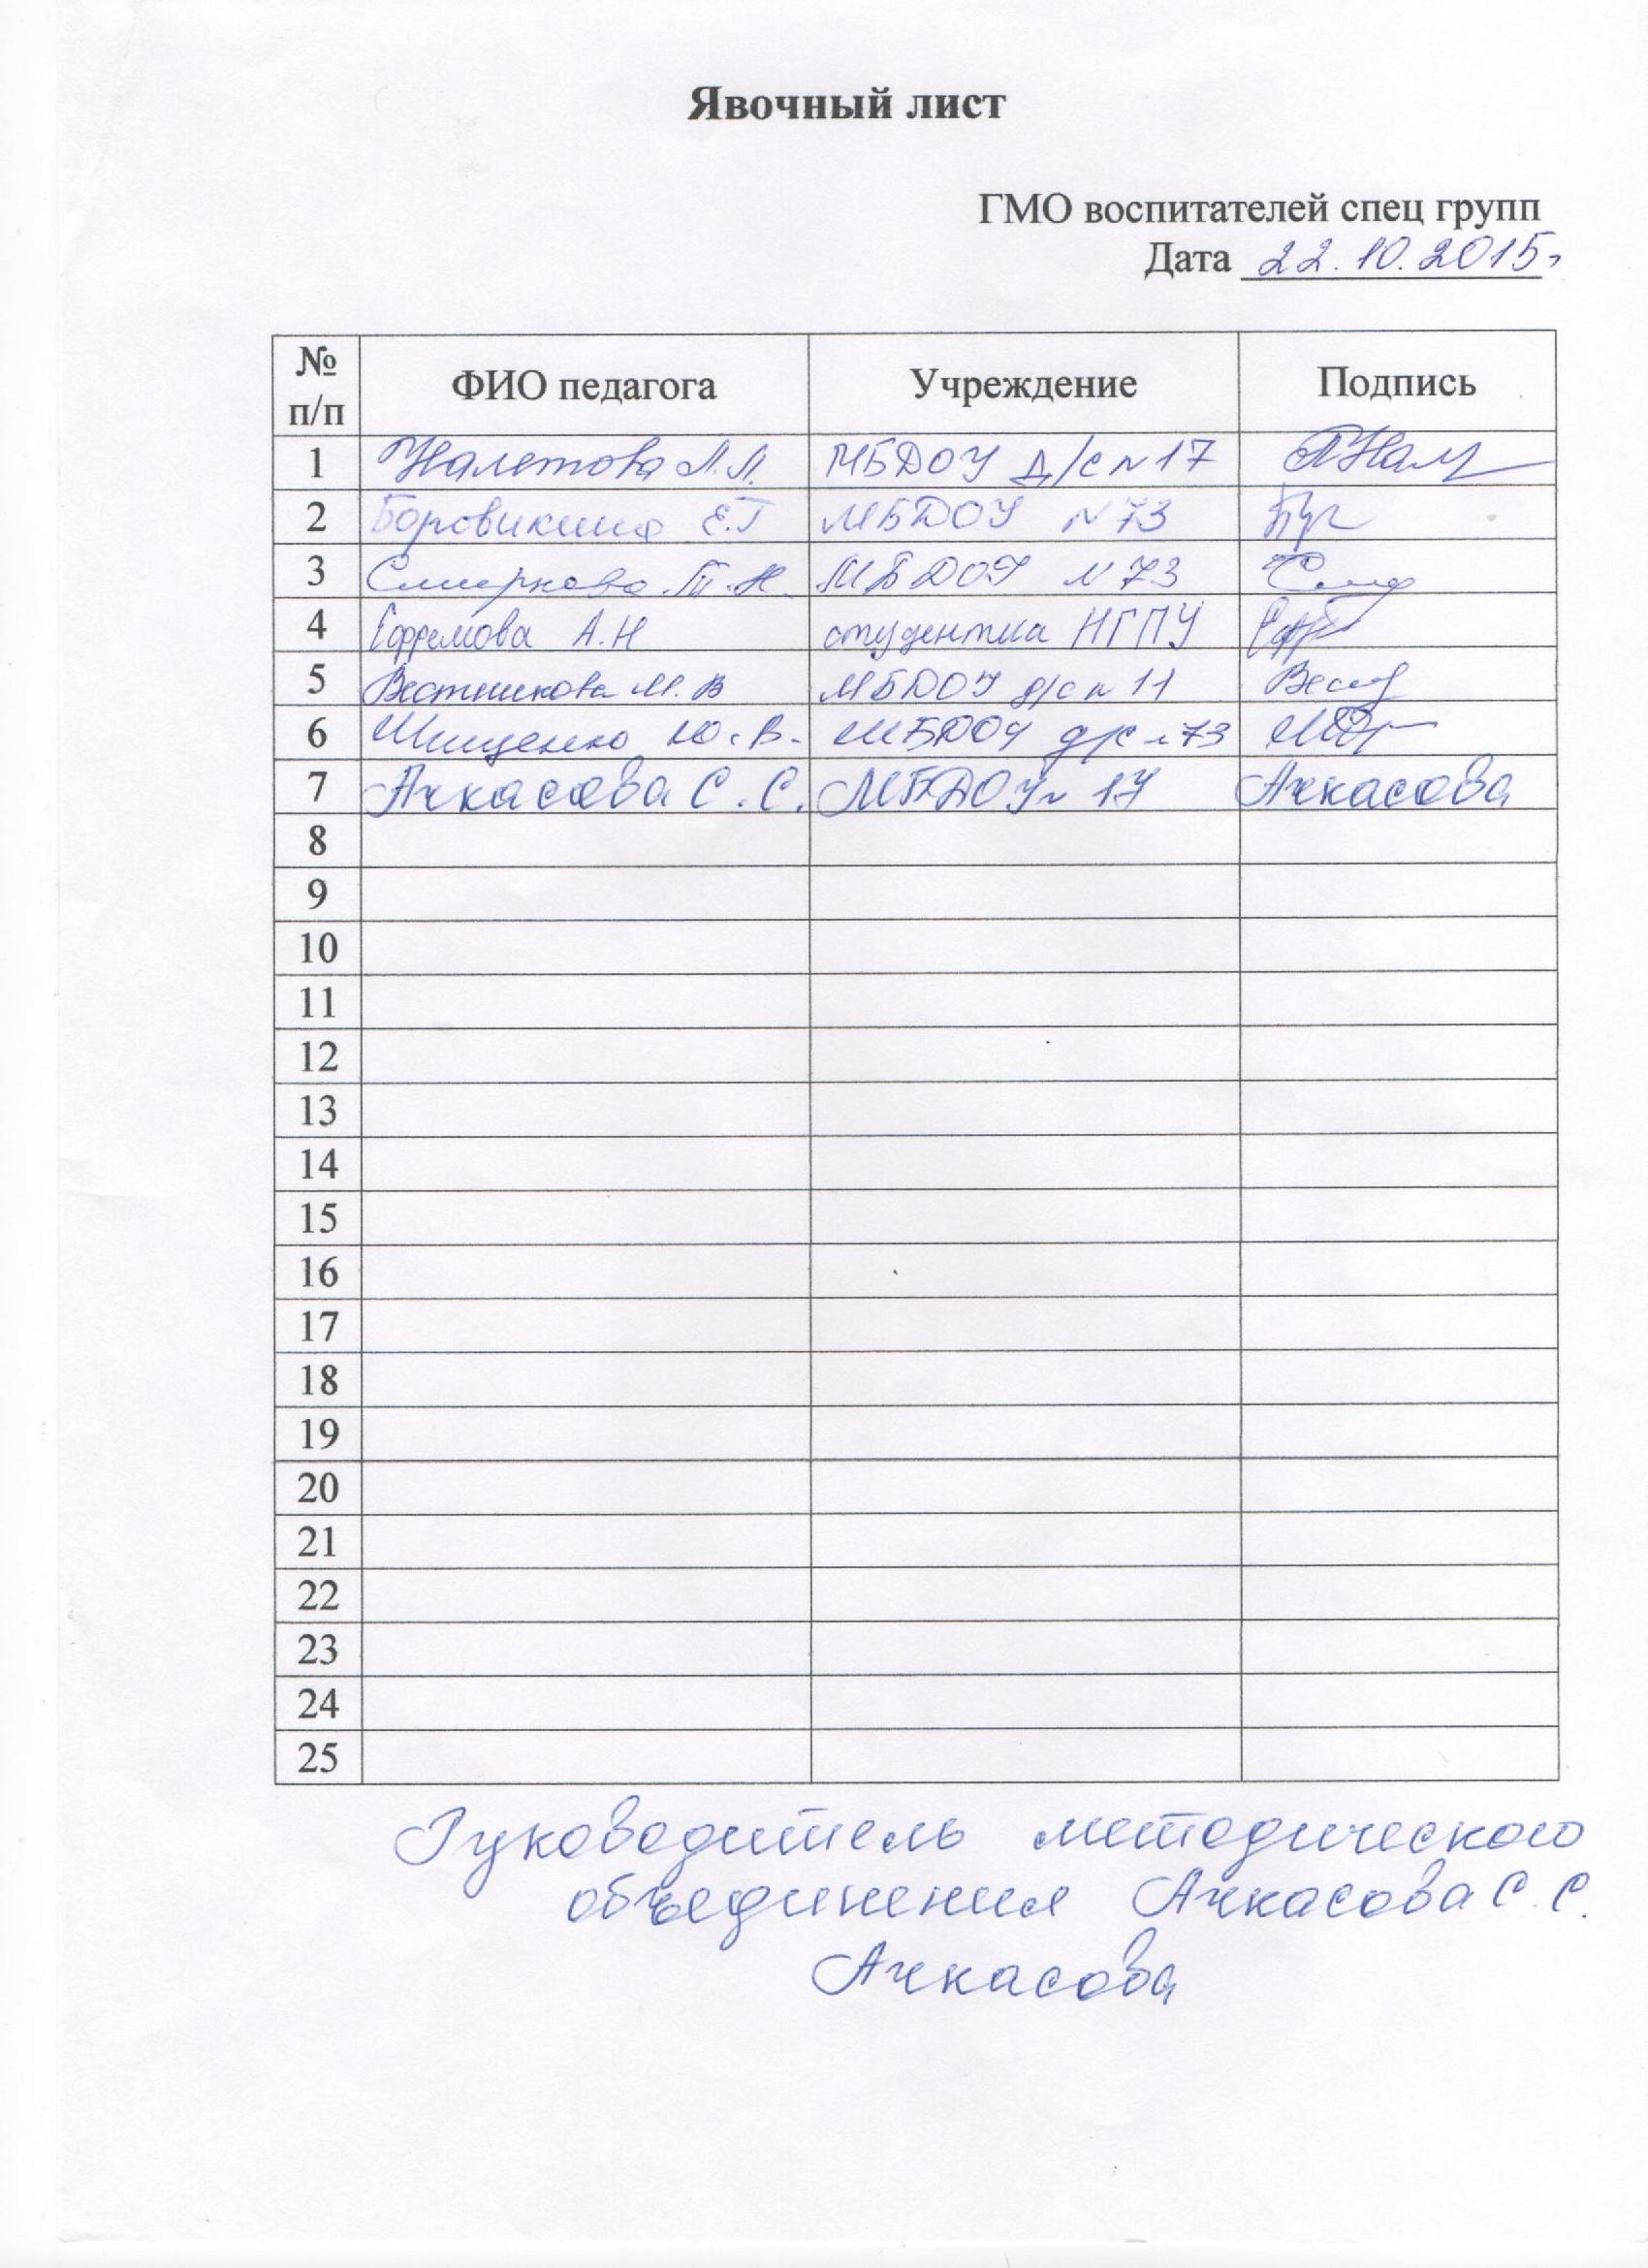 Явочный лист
ГМО воспитателей спец групп
Дата 22.10.2015г
№ п/п ФИО педагога Учреждение Подпись
1 Налетова Л.Л. МБДОУ д/с №17
2 Боровикина Е.Г МБДОУ №73
3 Смирнова Т.Н. МБДОУ №73
4 Ефремова А.Н студентка НГПУ
5 Вестникова М.В МБДОУ д/с №11
6 Ю.В. МБДОУ д/с №73
7 Ачкасова С.С. МБДОУ№ 17 Ачкасова
8
9
10
11
12
13
14
15
16
17
18
19
20
21
22
23
24
25
Руководитель методического
объединения Ачкасова С.С.
Ачкасова